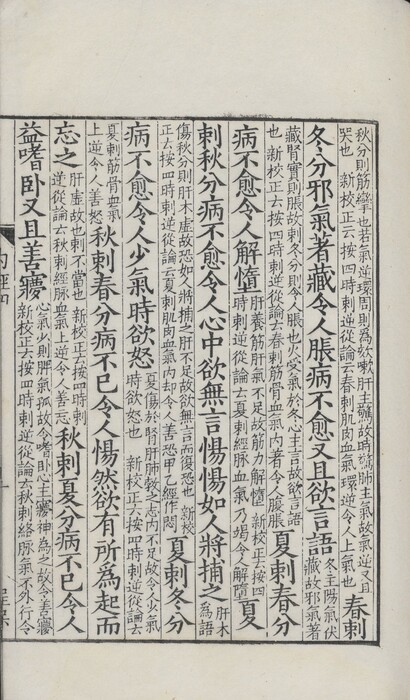 秋分則筋攣也若氣逆環周則為欬嗽肝主驚故時驚肺主氣故氣逆又且
哭也 新校正云按四時刺逆從論云春刺肌肉血氣環逆令人上氣也
春刺
冬分邪氣著藏令人脹病不愈又且欲言語
冬主陽氣伏
藏故邪氣著
藏腎實則脹故刺冬分則令人脹也火受氣於冬心主言故欲言語
也 新校正云按四時刺逆從論云春刺筋骨血氣内著令人腹脹
夏刺春分
病不愈令人解墮
肝養筋肝氣不足故筋力解墮 新校正云按四
時刺逆從論云夏刺經脉血氣乃竭令人解墮
夏
刺秋分病不愈令人心中欲無言惕惕如人將捕之
肝木
為語
傷秋分則肝木虛故恐如人將捕之肝不足故欲無言而復恐也 新校
正云按四時刺逆從論云夏刺肌肉血氣内却令人善恐甲乙經作悶
夏刺冬分
病不愈令人少氣時欲怒
夏傷於腎肝肺勃之志内不足故令人少氣
時欲怒也 新校正云按四時刺逆從論云
夏刺筋骨血氣
上逆令人善怒
秋刺春分病不已令人惕然欲有所為起而
忘之
肝虛故也刺不當也 新校正云按四時刺
逆從論云秋刺經脉血氣上逆令人善忘
秋刺夏分病不已令人
益嗜臥又且善㝱
心氣少則脾氣孤故令嗜臥心主㝱神為之故令善㝱
新校正云按四時刺逆從論云秋刺絡脉氣不外行令